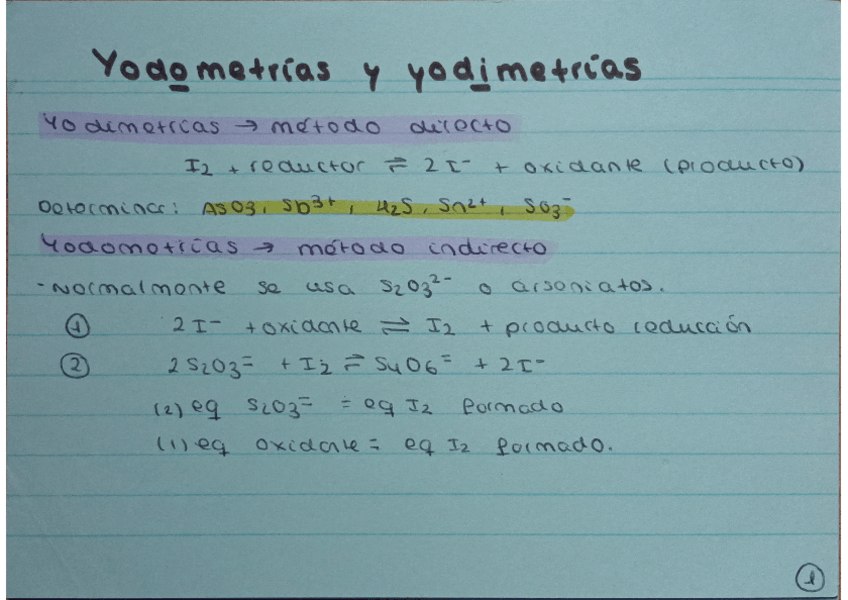 Yodometrías y yodimetrías
Yodimetrias → método directo
I2 + reductor ⇌ 2I⁻ + oxidante (producto)
Determinar: AsO3, Sb³⁺, H2S, Sn²⁺, SO3⁻
Yodometrias → método indirecto
-Normalmente se usa S2O3²⁻ o arseniatos.
① 2I⁻ + oxidante ⇌ I2 + producto reducción
② 2S2O3⁼ + I2 ⇌ S4O6⁼ + 2I⁻
(2) eq S2O3⁼ = eq I2 formado
(1) eq oxidante = eq I2 formado.
①